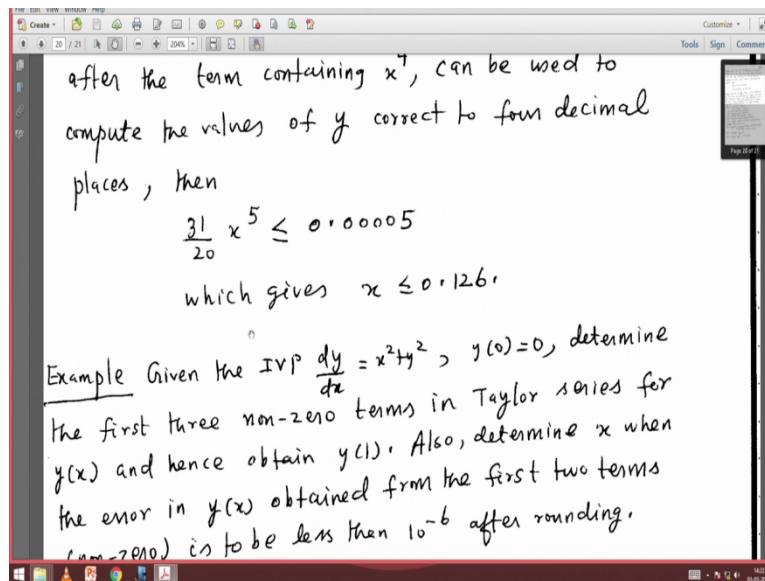 File Edit View Window Help
Create
Customize
20 / 21
204%
Tools Sign Comment
after the term containing x⁴, can be used to
compute the values of y correct to four decimal
places, then
31/20 x⁵ ≤ 0.00005
which gives x ≤ 0.126.
Page 20 of 21
Example Given the IVP dy/dx = x²+y², y(0)=0, determine
the first three non-zero terms in Taylor series for
y(x) and hence obtain y(1). Also, determine x when
the error in y(x) obtained from the first two terms
(non-zero) is to be less then 10⁻⁶ after rounding.
14:22